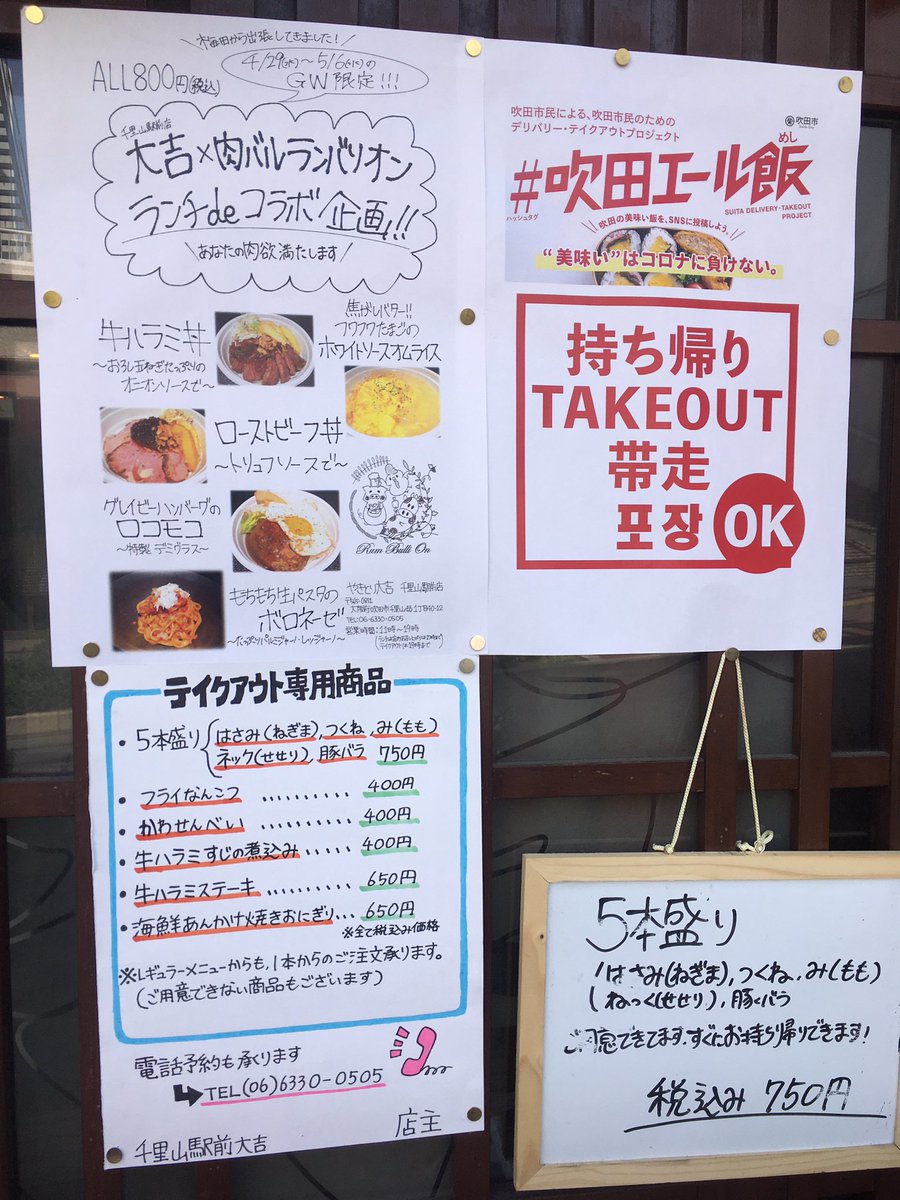 梅田から出張してきました!
4/29(水)~5/6(水)の
GW限定!!!
ALL800円(税込)
千里山駅前店
大吉×肉バルランバリオン
ランチdeコラボ企画!!!
あなたの肉欲満たします
牛ハラミ丼
~おろし玉ねぎたっぷりの
オニオンソースで~
焦がしバター!!
フワフワたまごの
ホワイトソースオムライス
ローストビーフ丼
~トリュフソースで~
グレイビーハンバーグの
ロコモコ
~特製デミグラス~
Rum Bull On
もちもち生パスタの
ボロネーゼ
~たっぷりパルミジャーノ・レッジャーノ~
やきとり大吉 千里山駅前店
TEL:06-6330-0505
営業時間:11時~19時
吹田市民による、吹田市民のための
デリバリー・テイクアウトプロジェクト
吹田市
Suita City
#吹田エール飯
めし
ハッシュタグ
SUITA DELIVERY・TAKEOUT
PROJECT
吹田の美味い飯を、SNSに投稿しよう。
“美味い”はコロナに負けない。
持ち帰り
TAKEOUT
带走
포장
OK
テイクアウト専用商品
・5本盛り はさみ(ねぎま),つくね,み(もも)
ネック(せせり),豚バラ 750円
・フライなんこつ .......... 400円
・かわせんべい .......... 400円
・牛ハラミすじの煮込み ..... 400円
・牛ハラミステーキ .......... 650円
・海鮮あんかけ焼きおにぎり... 650円
※全て税込み価格
※レギュラーメニューからも、1本からのご注文承ります。
(ご用意できない商品もございます)
電話予約も承ります
TEL(06)6330-0505
店主
千里山駅前大吉
5本盛り
はさみ(ねぎま),つくね,み(もも)
ねっく(せせり),豚バラ
ご用意できてます、すぐにお持ち帰りできます!
税込み 750円